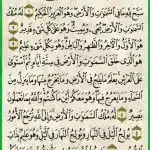 سَبَّحَ لِلَّهِ مَا فِي السَّمَٰوَٰتِ وَالْأَرْضِ وَهُوَ الْعَزِيزُ الْحَكِيمُ لَهُ مُلْكُ
السَّمَٰوَٰتِ وَالْأَرْضِ يُحْيِۦ وَيُمِيتُ وَهُوَ عَلَىٰ كُلِّ شَيْءٍ قَدِيرٌ
هُوَ الْأَوَّلُ وَالْآخِرُ وَالظَّاهِرُ وَالْبَاطِنُ وَهُوَ بِكُلِّ شَيْءٍ عَلِيمٌ
هُوَ الَّذِي خَلَقَ السَّمَٰوَٰتِ وَالْأَرْضَ فِي سِتَّةِ أَيَّامٍ ثُمَّ اسْتَوَىٰ
عَلَى الْعَرْشِ يَعْلَمُ مَا يَلِجُ فِي الْأَرْضِ وَمَا يَخْرُجُ مِنْهَا وَمَا يَنزِلُ مِنَ
السَّمَاءِ وَمَا يَعْرُجُ فِيهَا وَهُوَ مَعَكُمْ أَيْنَ مَا كُنتُمْ وَاللَّهُ بِمَا تَعْمَلُونَ
بَصِيرٌ لَهُ مُلْكُ السَّمَٰوَٰتِ وَالْأَرْضِ وَإِلَى اللَّهِ تُرْجَعُ الْأُمُورُ
يُولِجُ اللَّيْلَ فِي النَّهَارِ وَيُولِجُ النَّهَارَ فِي اللَّيْلِ وَهُوَ عَلِيمٌ